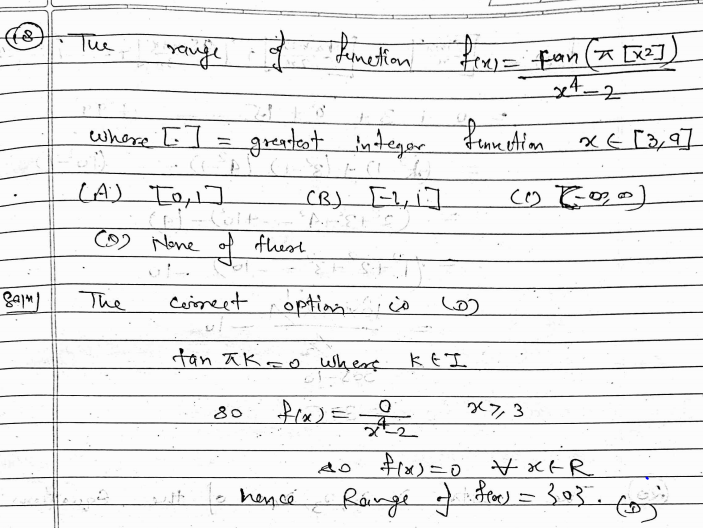 (18). The range of function f(x) = tan(π[x²]) / x⁴-2
where [.] = greatest integer function x ∈ [3,9]
(A) [0,1] (B) [-1,1] (C) (-∞,∞)
(D) None of these
Sol^n The correct option is (D)
tan πK = 0 where K ∈ I
so f(x) = 0 / x⁴-2 x ≥ 3
so f(x) = 0 ∀ x ∈ R
hence Range of f(x) = {0}. (D)